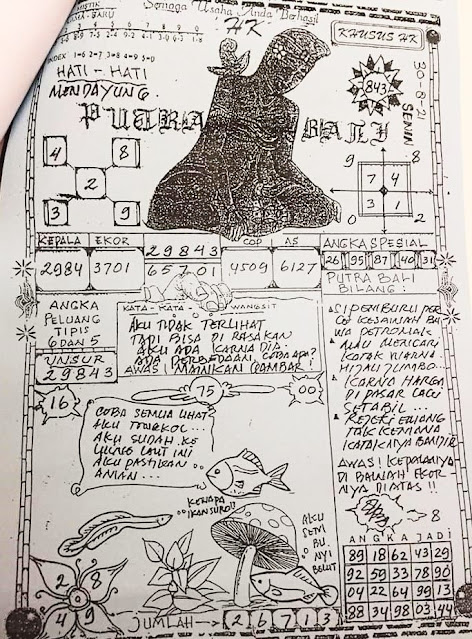 Semoga Usaha Anda Berhasil
HK
KHUSUS HK
INDEX 1=6 2=7 3=8 4=9 5=0
HATI - HATI
MENDAYUNG
30-8-21
SENIN
843
PUTRA BALI
4 8
2
3 9
9 8
7 4
3 1
0 2
KEPALA EKOR 29843 COP AS
2984 3701 65701 4509 6127
ANGKA SPESIAL
26 95 87 40 31
PUTRA BALI
BILANG :
ANGKA
PELUANG
TIPIS
6 DAN 5
UNSUR
29843
KATA - KATA WANGSIT
AKU TIDAK TERLIHAT
TAPI BISA DI RASAKAN
AKU ADA KARNA DIA
ADA PERBEDAAN, COBA APA?
AWAS! MAINKAN GAMBAR!
SI PEMBURU PER
GI KESAWAH BA
WA PETROMAK
MAU MENCARI
KATAK WARNA
HIJAU JUMBO...
KARNA HARGA
DI PASAR LAGI
SETABIL...
REJEKI EMANG
TAK KEMANA
KATAKNYA BANJIR
AWAS! KEPALANYA
DI BAWAH EKOR
NYA DIATAS !!
16
75
00
COBA SEMUA LIHAT
AKU TONGKOL...
AKU SUDAH KE
UJUNG LAUT INI
AKU PASTIKAN
AMAN...
KENAPA
IKAN SURO!!
AKU
SEMI
BU
NYI
BELUT
8
ANGKA JADI
89 18 62 43 29
92 59 33 78 90
04 22 64 99 13
88 34 98 03 44
2 8
4 9
JUMLAH → 2 6 7 1 3